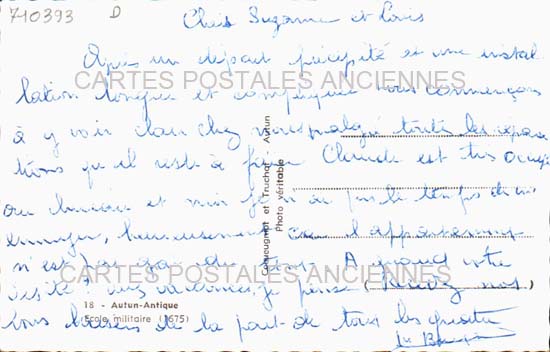 710393 D
Chers Suzanne et Louis
Après un départ précipité et une instal
lation longue et compliquée nous commençons
CARTES POSTALES ANCIENNES
à y voir clair chez nous malgré toutes les répara
tions qu'il reste à faire Claude est très occupé
au bureau et moi je n'ai pas le temps de m'
ennuyer, heureusement car l'appartement
n'est pas gai du A quand votre
CARTES POSTALES ANCIENNES
visite vacances je pense
18 - Autun-Antique
Ecole militaire (1675)
vous baisers de la part de tous les quatre
Gaugugnot et Truchot - Autun
Photo véritable